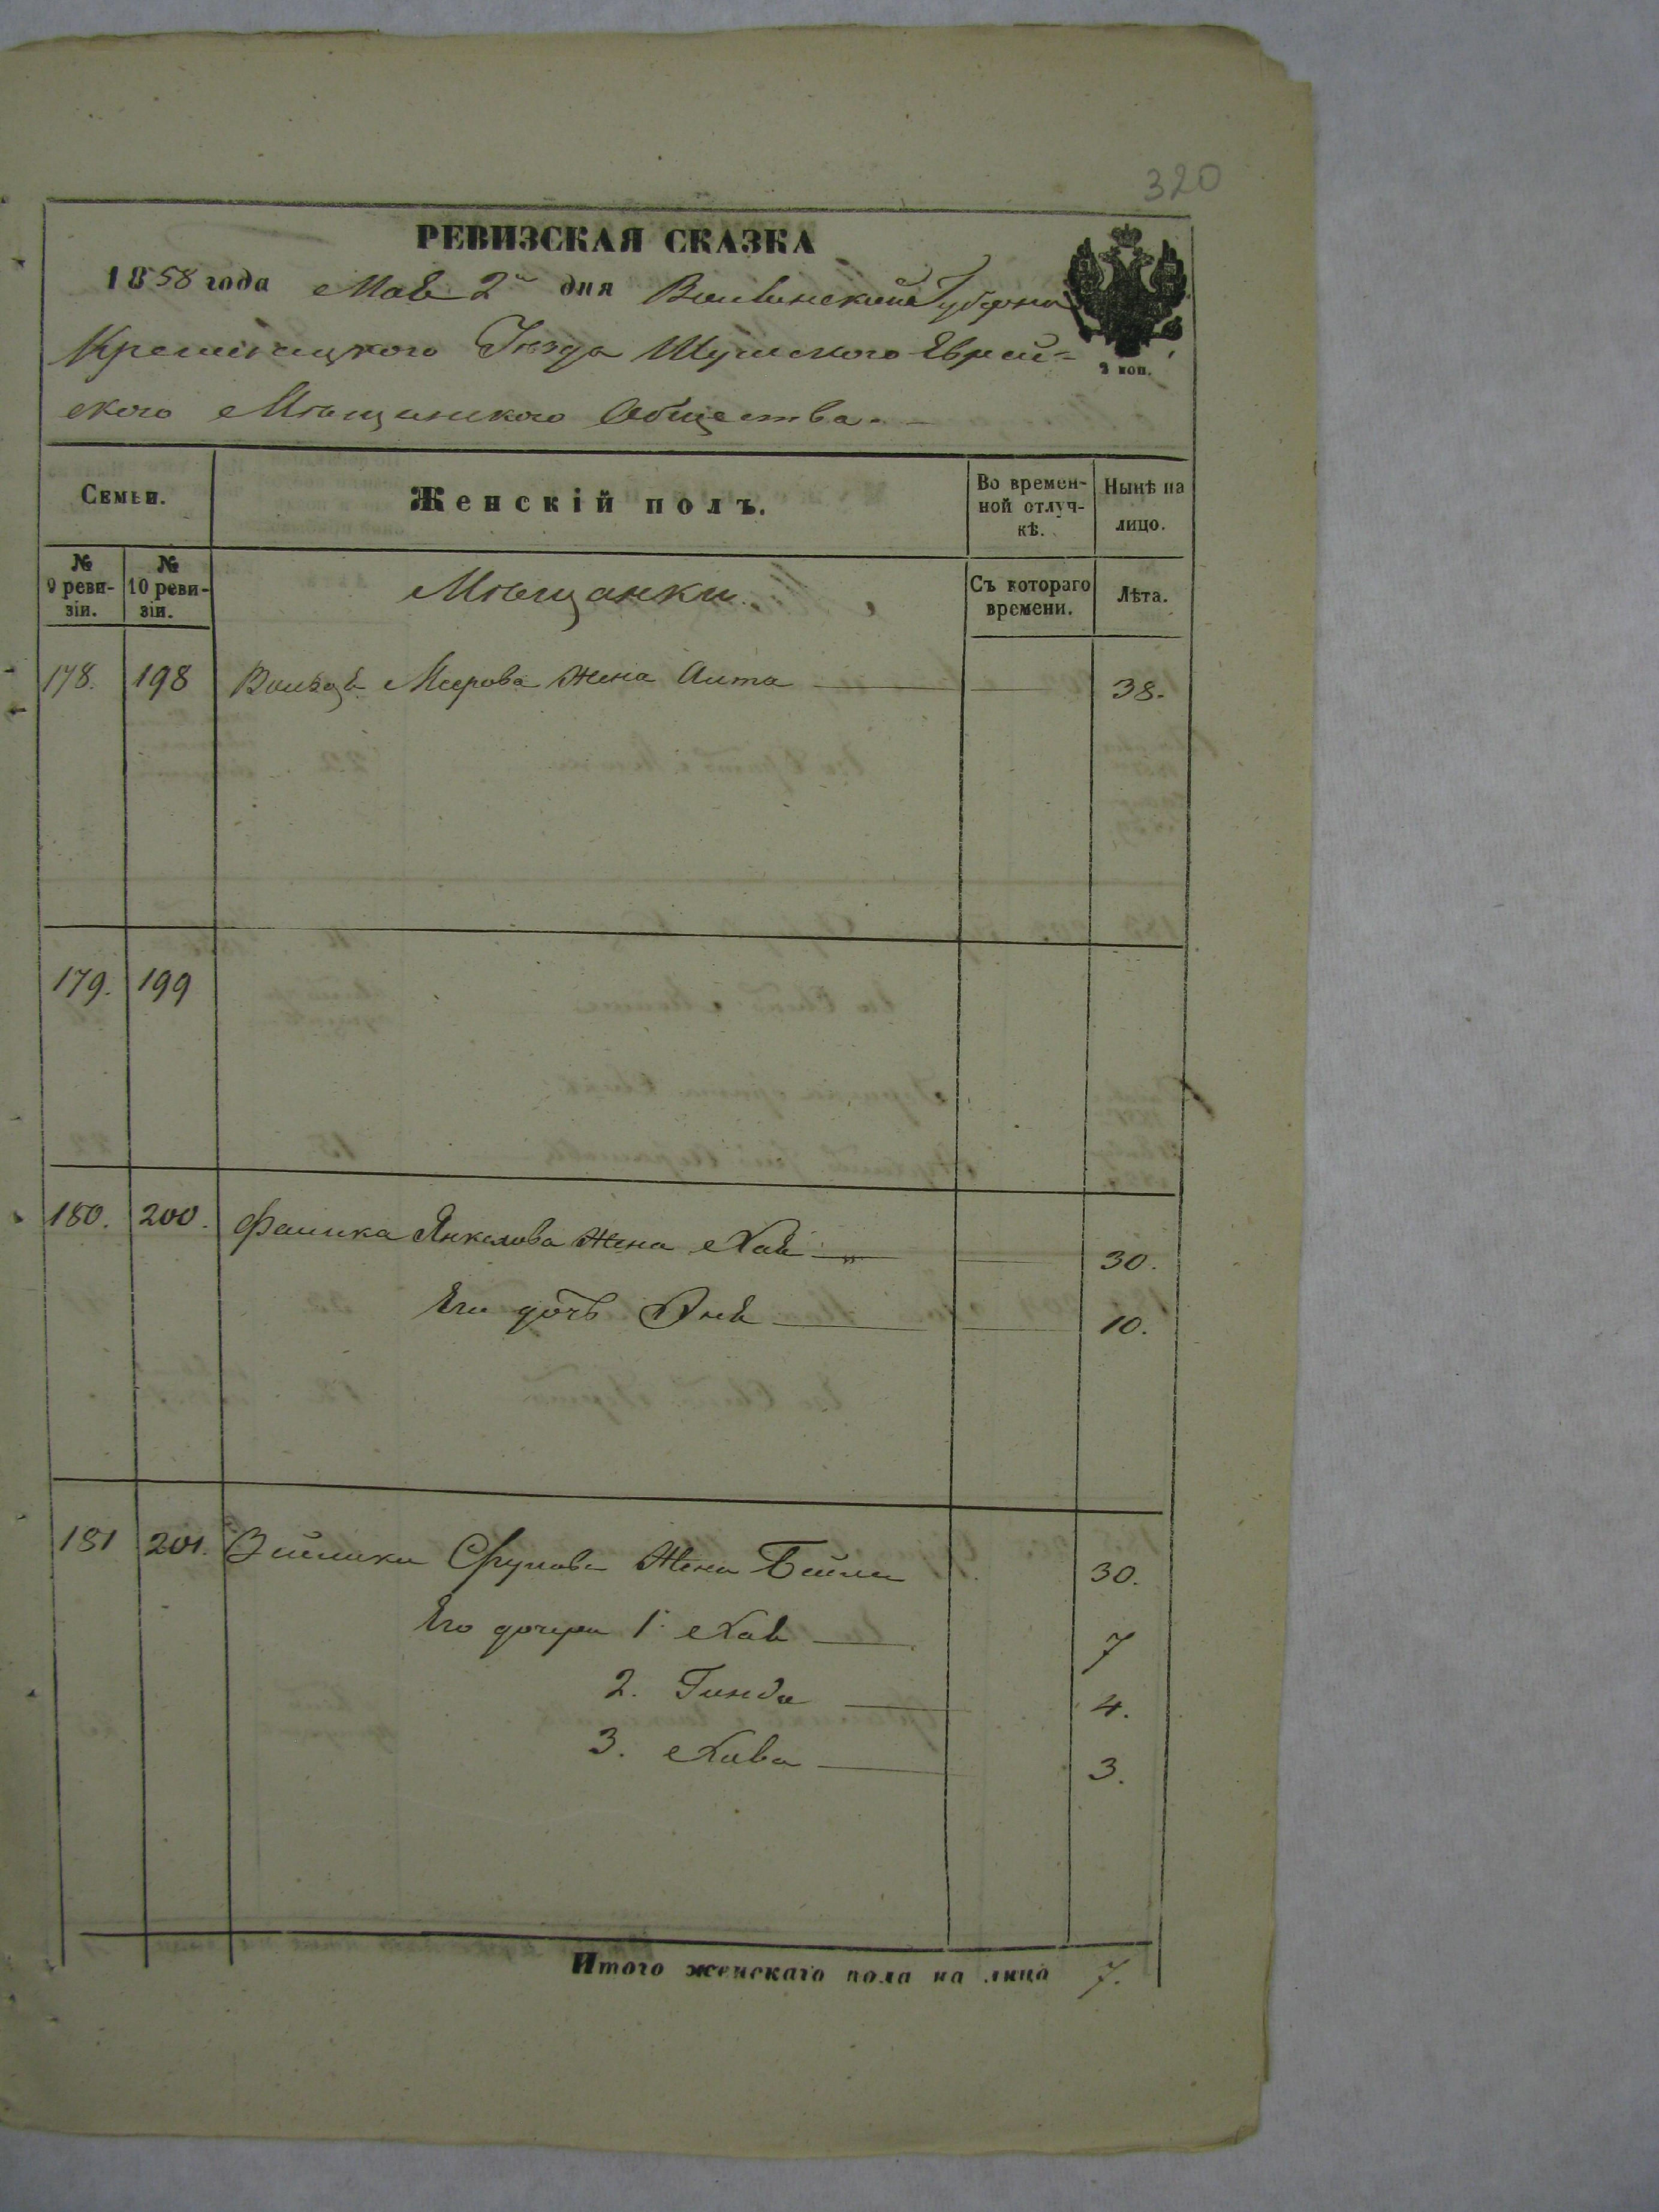 320
РЕВИЗСКАЯ СКАЗКА
1858 года Мая 2го дня Волынской Губерни
Кременецкого Уезда Шумского Еврей=
ского Мѣщанского Общества.
2 коп.
Семьи.
Женскій полъ.
Во времен-
ной отлуч-
кѣ.
Нынѣ на
лицо.
№
9 реви-
зіи.
№
10 реви-
зіи.
Мѣщанки
Съ котораго
времени.
Лѣта.
178. 198 Меерова жена 38.
179. 199
180. 200. Янкелова жена Хая 30.
Его дочь 10.
181 201. Срулова жена Бейла 30.
Его дочери 1. Хая 7
2. Гинда 4.
3. Хава 3.
Итого женскаго пола на лицо 7.